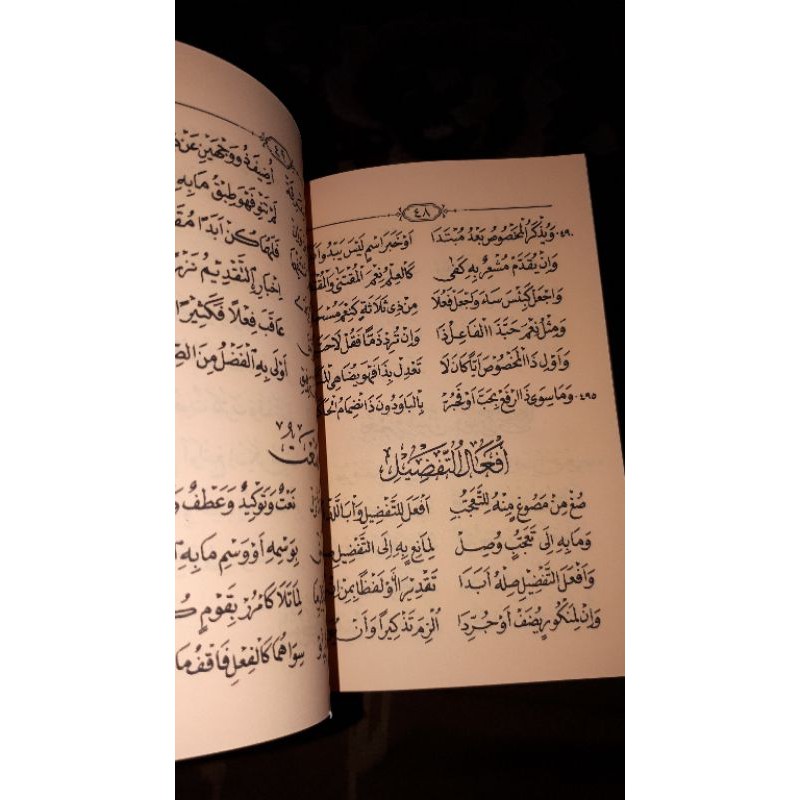 ٤٨
٤٩٠ وَيُذْكَرُ الْمَخْصُوصُ بَعْدُ مُبْتَدَا أَوْ خَبَرَ اسْمٍ لَيْسَ يَبْدُو
وَإِنْ يُقَدَّمْ مُشْعِرٌ بِهِ كَفَى كَالْعِلْمُ نِعْمَ الْمُقْتَنَى
وَاجْعَلْ كَبِئْسَ سَاءَ وَاجْعَلْ فَعُلَا مِنْ ذِي ثَلَاثَةٍ كَنِعْمَ
وَمِثْلُ نِعْمَ حَبَّذَا الْفَاعِلُ ذَا وَإِنْ تُرِدْ ذَمًّا فَقُلْ
وَأَوْلِ ذَا الْمَخْصُوصَ أَيًّا كَانَ لَا تَعْدِلْ بِذَا فَهُوَ يُضَاهِي
٤٩٥ وَمَا سِوَى ذَا ارْفَعْ بِحَبَّ أَوْ فَجُرّْ بِالْبَا وَدُونَ ذَا انْضِمَامُ
أَفْعَلُ التَّفْضِيلِ
صُغْ مِنْ مَصُوغٍ مِنْهُ لِلتَّعَجُّبِ أَفْعَلَ لِلتَّفْضِيلِ وَأْبَ
وَمَا بِهِ إِلَى تَعَجُّبٍ وُصِلْ لِمَانِعٍ بِهِ إِلَى التَّفْضِيلِ
وَأَفْعَلَ التَّفْضِيلِ صِلْهُ أَبَدَا تَقْدِيرًا أَوْ لَفْظًا بِمِنْ
وَإِنْ لِمَنْكُورٍ يُضَفْ أَوْ جُرِّدَا أُلْزِمَ تَذْكِيرًا وَأَنْ
٤٩
أُضِيفَ ذُو وَجْهَيْنِ عَنْ
لَمْ تَنْوِ فَهْوَ طِبْقُ مَا بِهِ
فَلَهُمَا كُنْ أَبَدًا
إِخْبَارٍ التَّقْدِيمُ
عَاقَبَ فِعْلًا فَكَثِيرًا
أَوْلَى بِهِ الْفَضْلُ مِنَ
نَعْتٌ وَتَوْكِيدٌ وَعَطْفٌ
بِوَسْمِهِ أَوْ وَسْمِ مَا بِهِ
لِمَا تَلَا كَامْرُرْ بِقَوْمٍ
سِوَاهُمَا كَالْفِعْلِ فَاقْفُ مَا